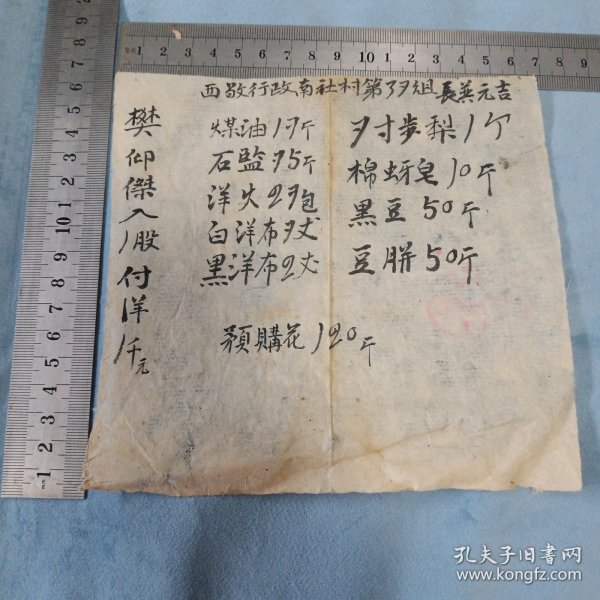 西敬行政南社村第39組長英元吉
樊仰傑入1股付洋1千元
煤油19斤
石監95斤
洋火29包
白洋布9丈
黑洋布2丈
預購花120斤
9寸步犁1个
棉蚜皂10斤
黑豆50斤
豆餅50斤
孔夫子旧书网
www.kongfz.com